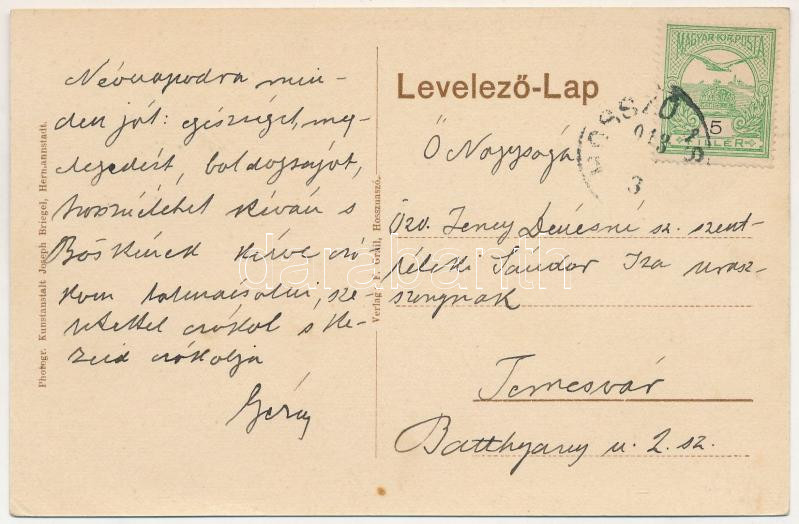 Névnapodra min-
den jót: egészséget, meg-
elegedést, boldogságot,
hosszú életet kíván s
Böskének kérve
csókom tolmácsolni, sze-
retettel csókol s ke-
zeid csókolja
Photogr. Kunstanstalt Joseph Briegel, Hermannstadt.
Verlag v. F. Graïl, Hosszuaszó.
Levelező-Lap
MAGYAR KIR. POSTA
5
FILLÉR
HOSSZU
913
3
Ő Nagysága
Özv. Jeney Dénesné sz. szent-
léleki Sándor Iza urasz-
szonynak
Temesvár
Batthyany u. 2. sz.
darabanth